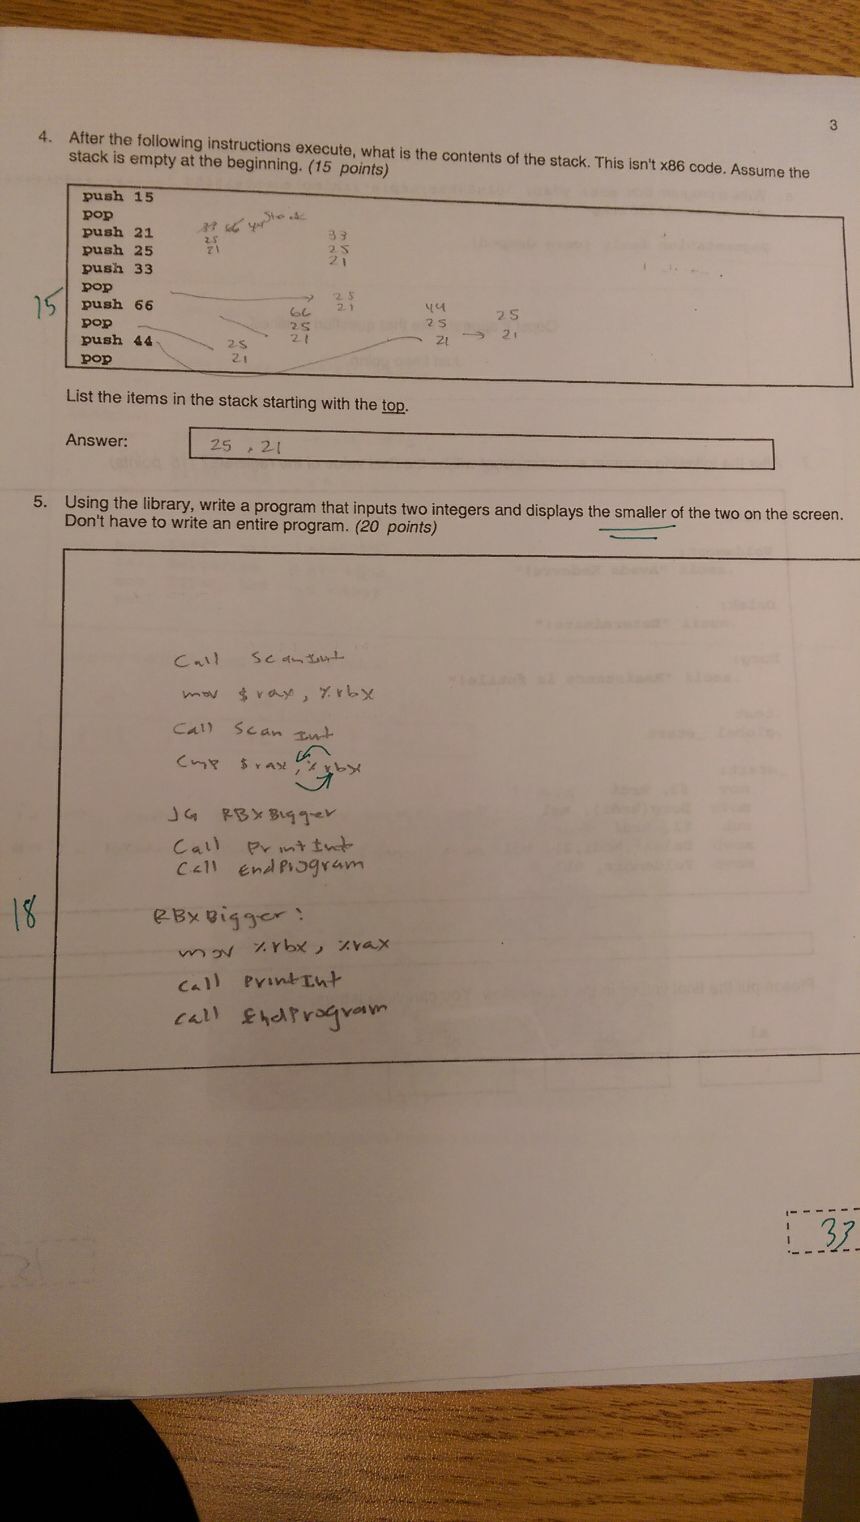 3
4. After the following instructions execute, what is the contents of the stack. This isn't x86 code. Assume the
stack is empty at the beginning. (15 points)
push 15
pop
push 21
push 25
push 33
pop
push 66
pop
push 44
pop
Stack
33 66 44
25
21
33
25
21
25
21
66
25
21
25
21
44
25
21
25
21
15
List the items in the stack starting with the top.
Answer: 25 , 21
5. Using the library, write a program that inputs two integers and displays the smaller of the two on the screen.
Don't have to write an entire program. (20 points)
Call ScanInt
mov $rax, %rbx
Call Scan Int
Cmp $rax, %rbx
JG RBXBigger
Call PrintInt
Call EndProgram
18
RBXBigger:
mov %rbx, %rax
call PrintInt
call EndProgram
33